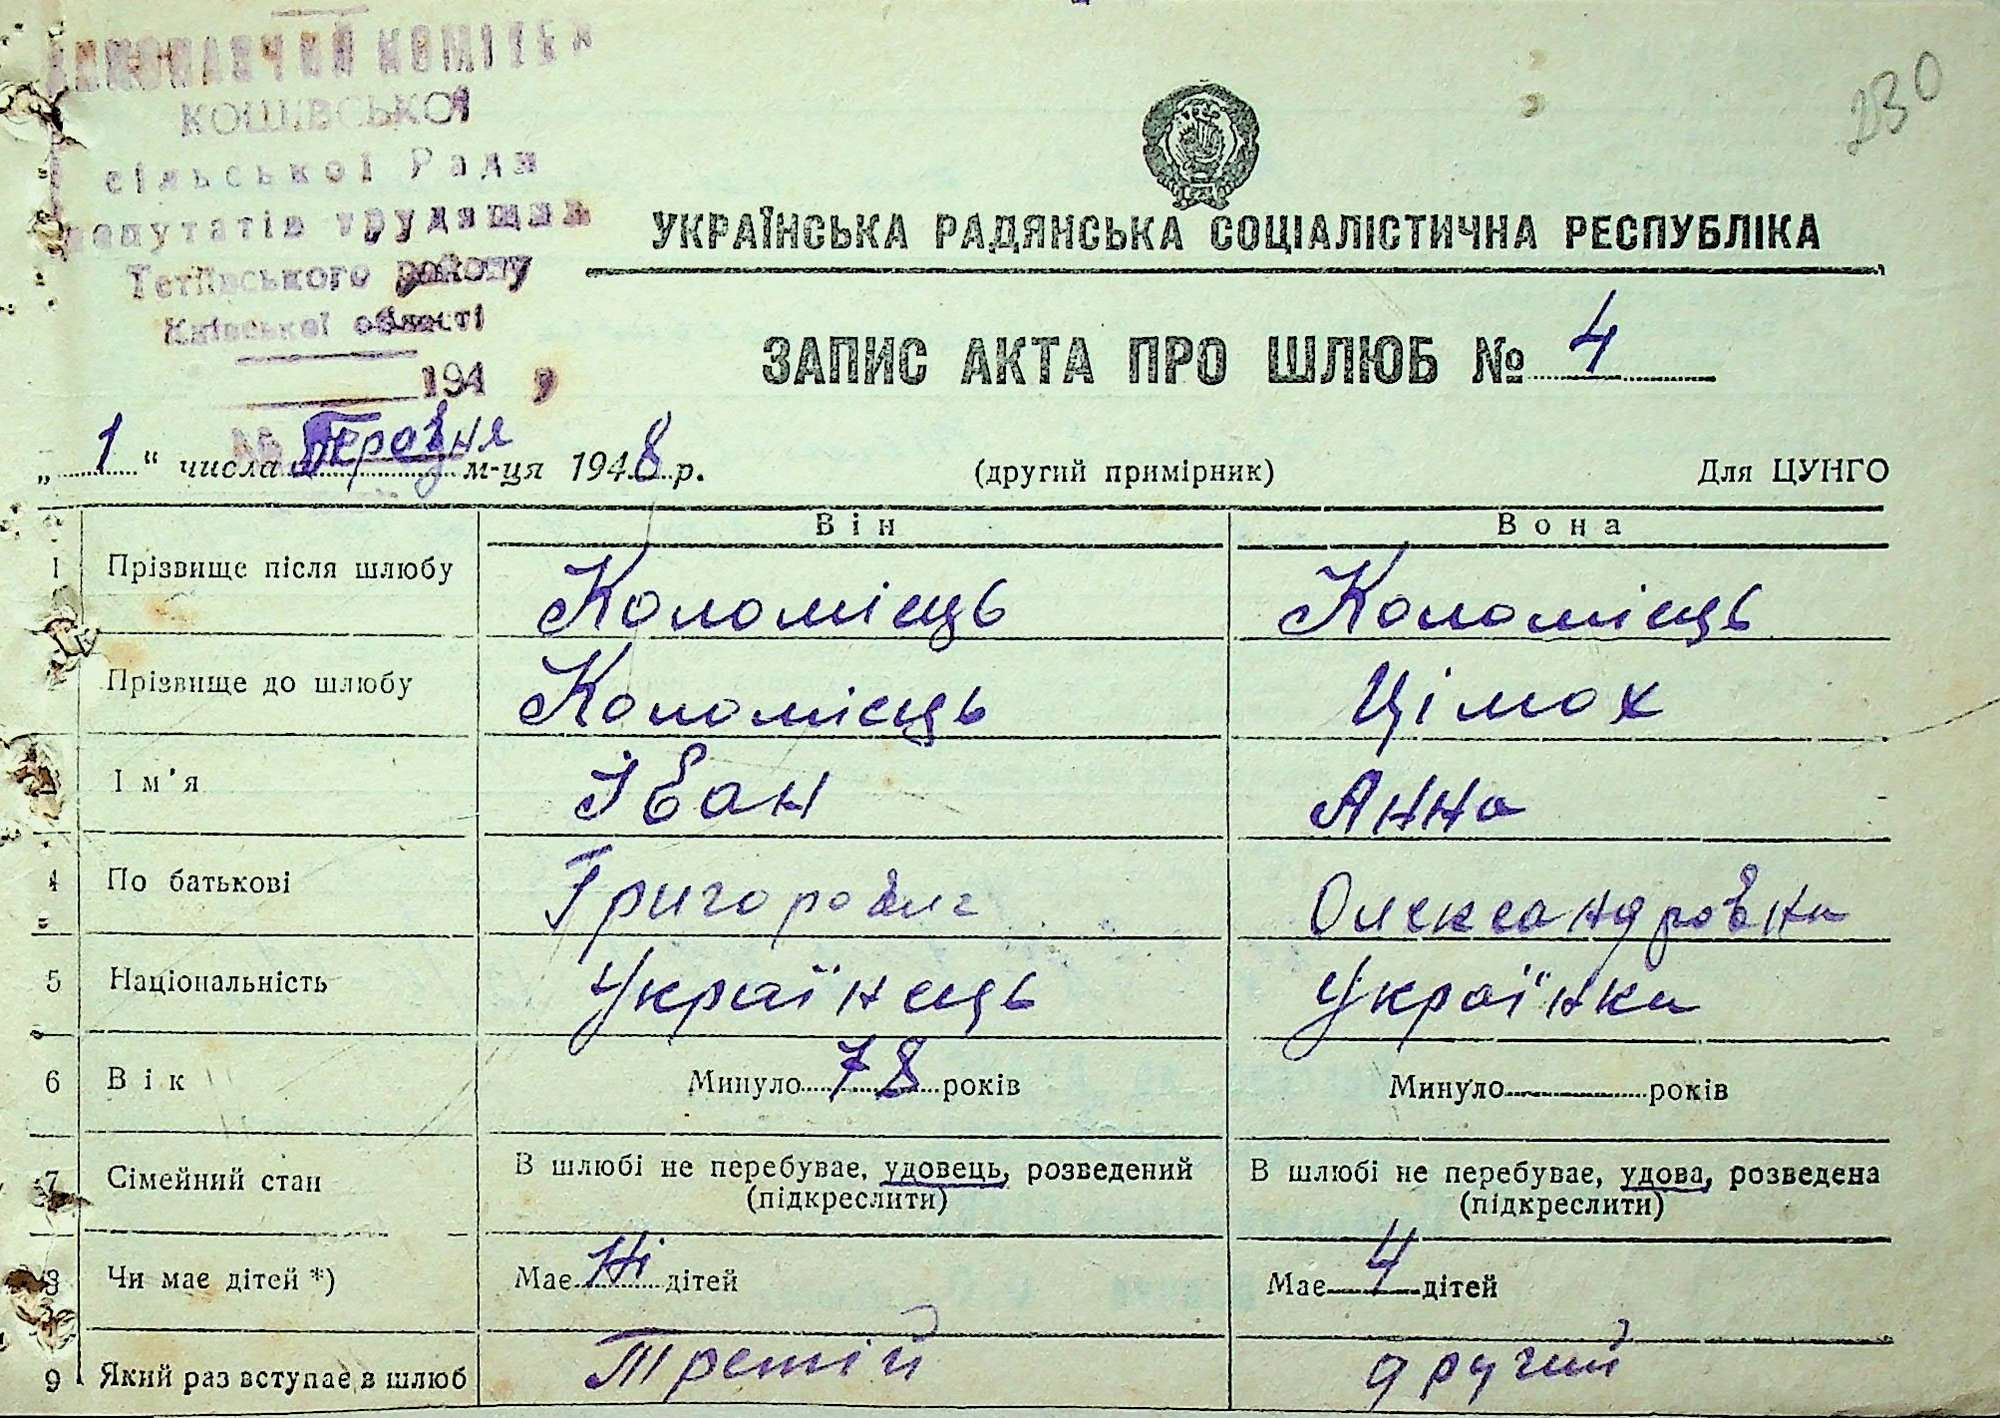 ВИКОНАВЧИЙ КОМІТЕТ
КОШІВСЬКОЇ
сільської Ради
депутатів трудящих
Тетіївського району
Київської області
194
№
230
УКРАЇНСЬКА РАДЯНСЬКА СОЦІАЛІСТИЧНА РЕСПУБЛІКА
ЗАПИС АКТА ПРО ШЛЮБ № 4
„ 1 “ числа Березня м-ця 1948 р. (другий примірник) Для ЦУНГО
Він Вона
1 Прізвище після шлюбу Коломієць Коломієць
Прізвище до шлюбу Коломієць Цімох
Ім'я Іван Анна
4 По батькові Григорович Олександровна
5 Національність Українець Українка
6 Вік Минуло 78 років Минуло років
7 Сімейний стан В шлюбі не перебуває, удовець, розведений В шлюбі не перебуває, удова, розведена
(підкреслити) (підкреслити)
8 Чи має дітей *) Має Ні дітей Має 4 дітей
9 Який раз вступає в шлюб Третій другий